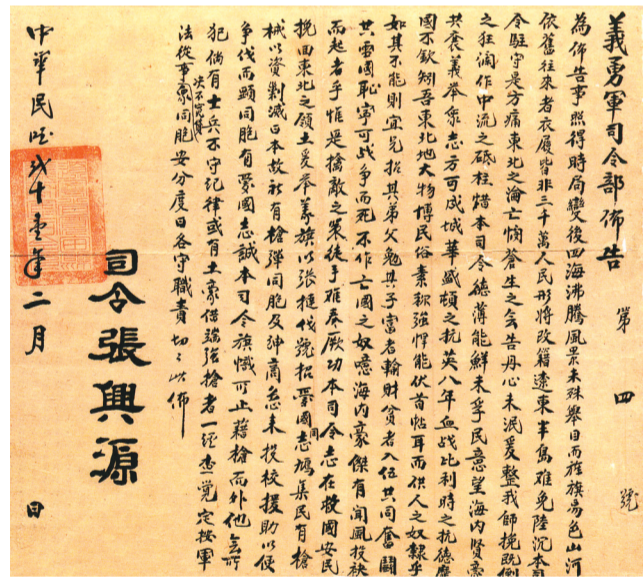 義勇軍司令部佈告
第四號
為佈告事照得時局變後四海沸騰風景未殊舉目而旌旗易色山河
依舊往來者衣履皆非三千萬人民形將改籍遼東半島難免陸沉本司
令駐守是方痛東北之淪亡憫蒼生之無告丹心未泯爰整我師挽既倒
之狂瀾作中流之砥柱惜本司令德薄能鮮未孚民意望海内賢豪
共襄義舉眾志方可成城華盛頓之抗英八年血战比利時之抗德
國不欽矧吾東北地大物博民俗素称強悍能伏首帖耳而供人之奴隸乎
如其不能則宜兄招其弟父勉其子富者輸財貧者入伍共同奮鬪
共雪國恥寧可战争而死不作亡國之奴噫海内豪傑有聞風投袂
而起者乎惟是擒敵之策徒手难奏厥功本司令志在救國安民
挽回東北之領土爰举義旗以張撻伐號招愛國同志鳩集民有槍
械以資剿滅日本敌新有槍彈同胞及紳商志未投校援助以便
爭伐而顕同胞有愛國志誠本司令旗幟可止藉槍而外他無所
犯倘有士兵不守纪律或有土豪借端強搶者一經查覺定按軍
法從事決不寬貸眾同胞安分度日各守職責切々此佈
司令張興源
中華民國貳十壹年二月 日